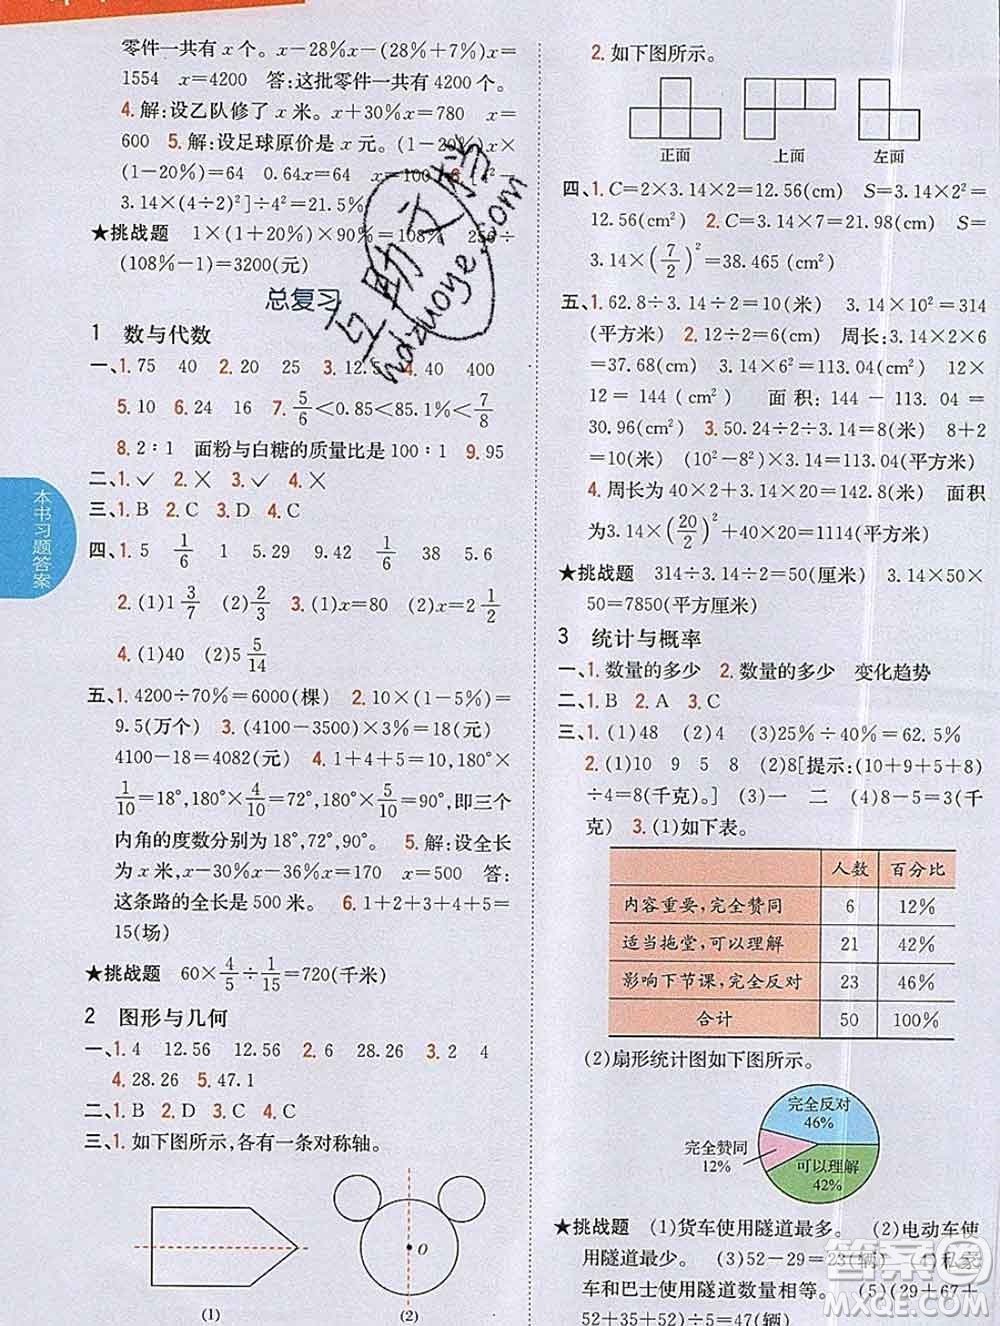 零件一共有 x 个。 x－28%x－(28%＋7%)x＝
1554 x＝4200 答:这批零件一共有 4200 个。
4.解:设乙队修了 x 米。x＋30%x＝780 x＝
600 5.解:设足球原价是 x 元。(1－20%)x
(1－20%)＝64 0.64x＝64 x＝100 6.[2²－
3.14×(4÷2)²]÷4²＝21.5%
★挑战题 1×(1＋20%)×90%＝108% 256÷
(108%－1)＝3200(元)
总复习
1 数与代数
一、1.75 40 2.20 25 3.12.5 4.40 400
5.10 6.24 16 7.5/6＜0.85＜85.1%＜7/8
8.2∶1 面粉与白糖的质量比是 100∶1 9.95
二、1.✓ 2.✗ 3.✓ 4.✗
三、1.B 2.C 3.D 4.C
四、1.5 1/6 1 5.29 9.42 1/6 38 5.6
2.(1)1 3/7 (2)2/3 3.(1)x＝80 (2)x＝2 1/2
4.(1)40 (2)5 5/14
五、1.4200÷70%＝6000(棵) 2.10×(1－5%)＝
9.5(万个) 3.(4100－3500)×3%＝18(元)
4100－18＝4082(元) 4.1＋4＋5＝10,180°×
1/10＝18°,180°×4/10＝72°,180°×5/10＝90°,即三个
内角的度数分别为 18°,72°,90°。 5.解:设全长
为 x 米。x－30%x－36%x＝170 x＝500 答:
这条路的全长是 500 米。 6.1＋2＋3＋4＋5＝
15(场)
★挑战题 60×4/5÷1/15＝720(千米)
2 图形与几何
一、1.4 12.56 12.56 2.6 28.26 3.2 4
4.28.26 5.47.1
二、1.B 2.D 3.B 4.C
三、1.如下图所示,各有一条对称轴。
O
(1) (2)
本书习题答案
2.如下图所示。
正面 上面 左面
四、1.C＝2×3.14×2＝12.56(cm) S＝3.14×2²＝
12.56(cm²) 2.C＝3.14×7＝21.98(cm) S＝
3.14×(7/2)²＝38.465(cm²)
五、1.62.8÷3.14÷2＝10(米) 3.14×10²＝314
(平方米) 2.周长:3.14×2×6
＝37.68(cm) 3.14×6²＝113.04(cm²) 12×
12＝144(cm²) 面积:144－113.04＝
30.96(cm²) 3.50÷2÷(3＋2)＝10(cm) 8÷2＝
4(cm) (10²－8²)×3.14＝113.04(cm²)
4.周长为 40×2＋3.14×20＝142.8(米) 面积
为3.14×(20/2)²＋40×20＝1114(平方米)
★挑战题 314÷3.14÷2＝50(厘米) 3.14×50×
50＝7850(平方厘米)
3 统计与概率
一、1.数量的多少 2.数量的多少 变化趋势
二、1.B 2.A 3.C
三、1.(1)48 (2)4 (3)25%÷40%＝62.5%
2.(1)10 9 5 8 (2)8[提示:(10＋9＋5＋8)
÷4＝8(千克)。] (3)一 二 (4)8－5＝3(千
克) 3.(1)如下表。
人数 百分比
内容重要,完全赞同 6 12%
适当拖堂,可以理解 21 42%
影响下节课,完全反对 23 46%
合计 50 100%
(2)扇形统计图如下图所示。
完全反对
46%
完全赞同
12%
可以理解
42%
★挑战题 (1)货车使用隧道最多。 (2)电动车使
用隧道最少。 (3)52－29＝23(辆) (4)私家
车和巴士使用隧道数量相等。 (5)(29＋67＋
52＋35＋52)÷5＝47(辆)
互助文学
hdzuoye.com
答案圈
MXQE.COM